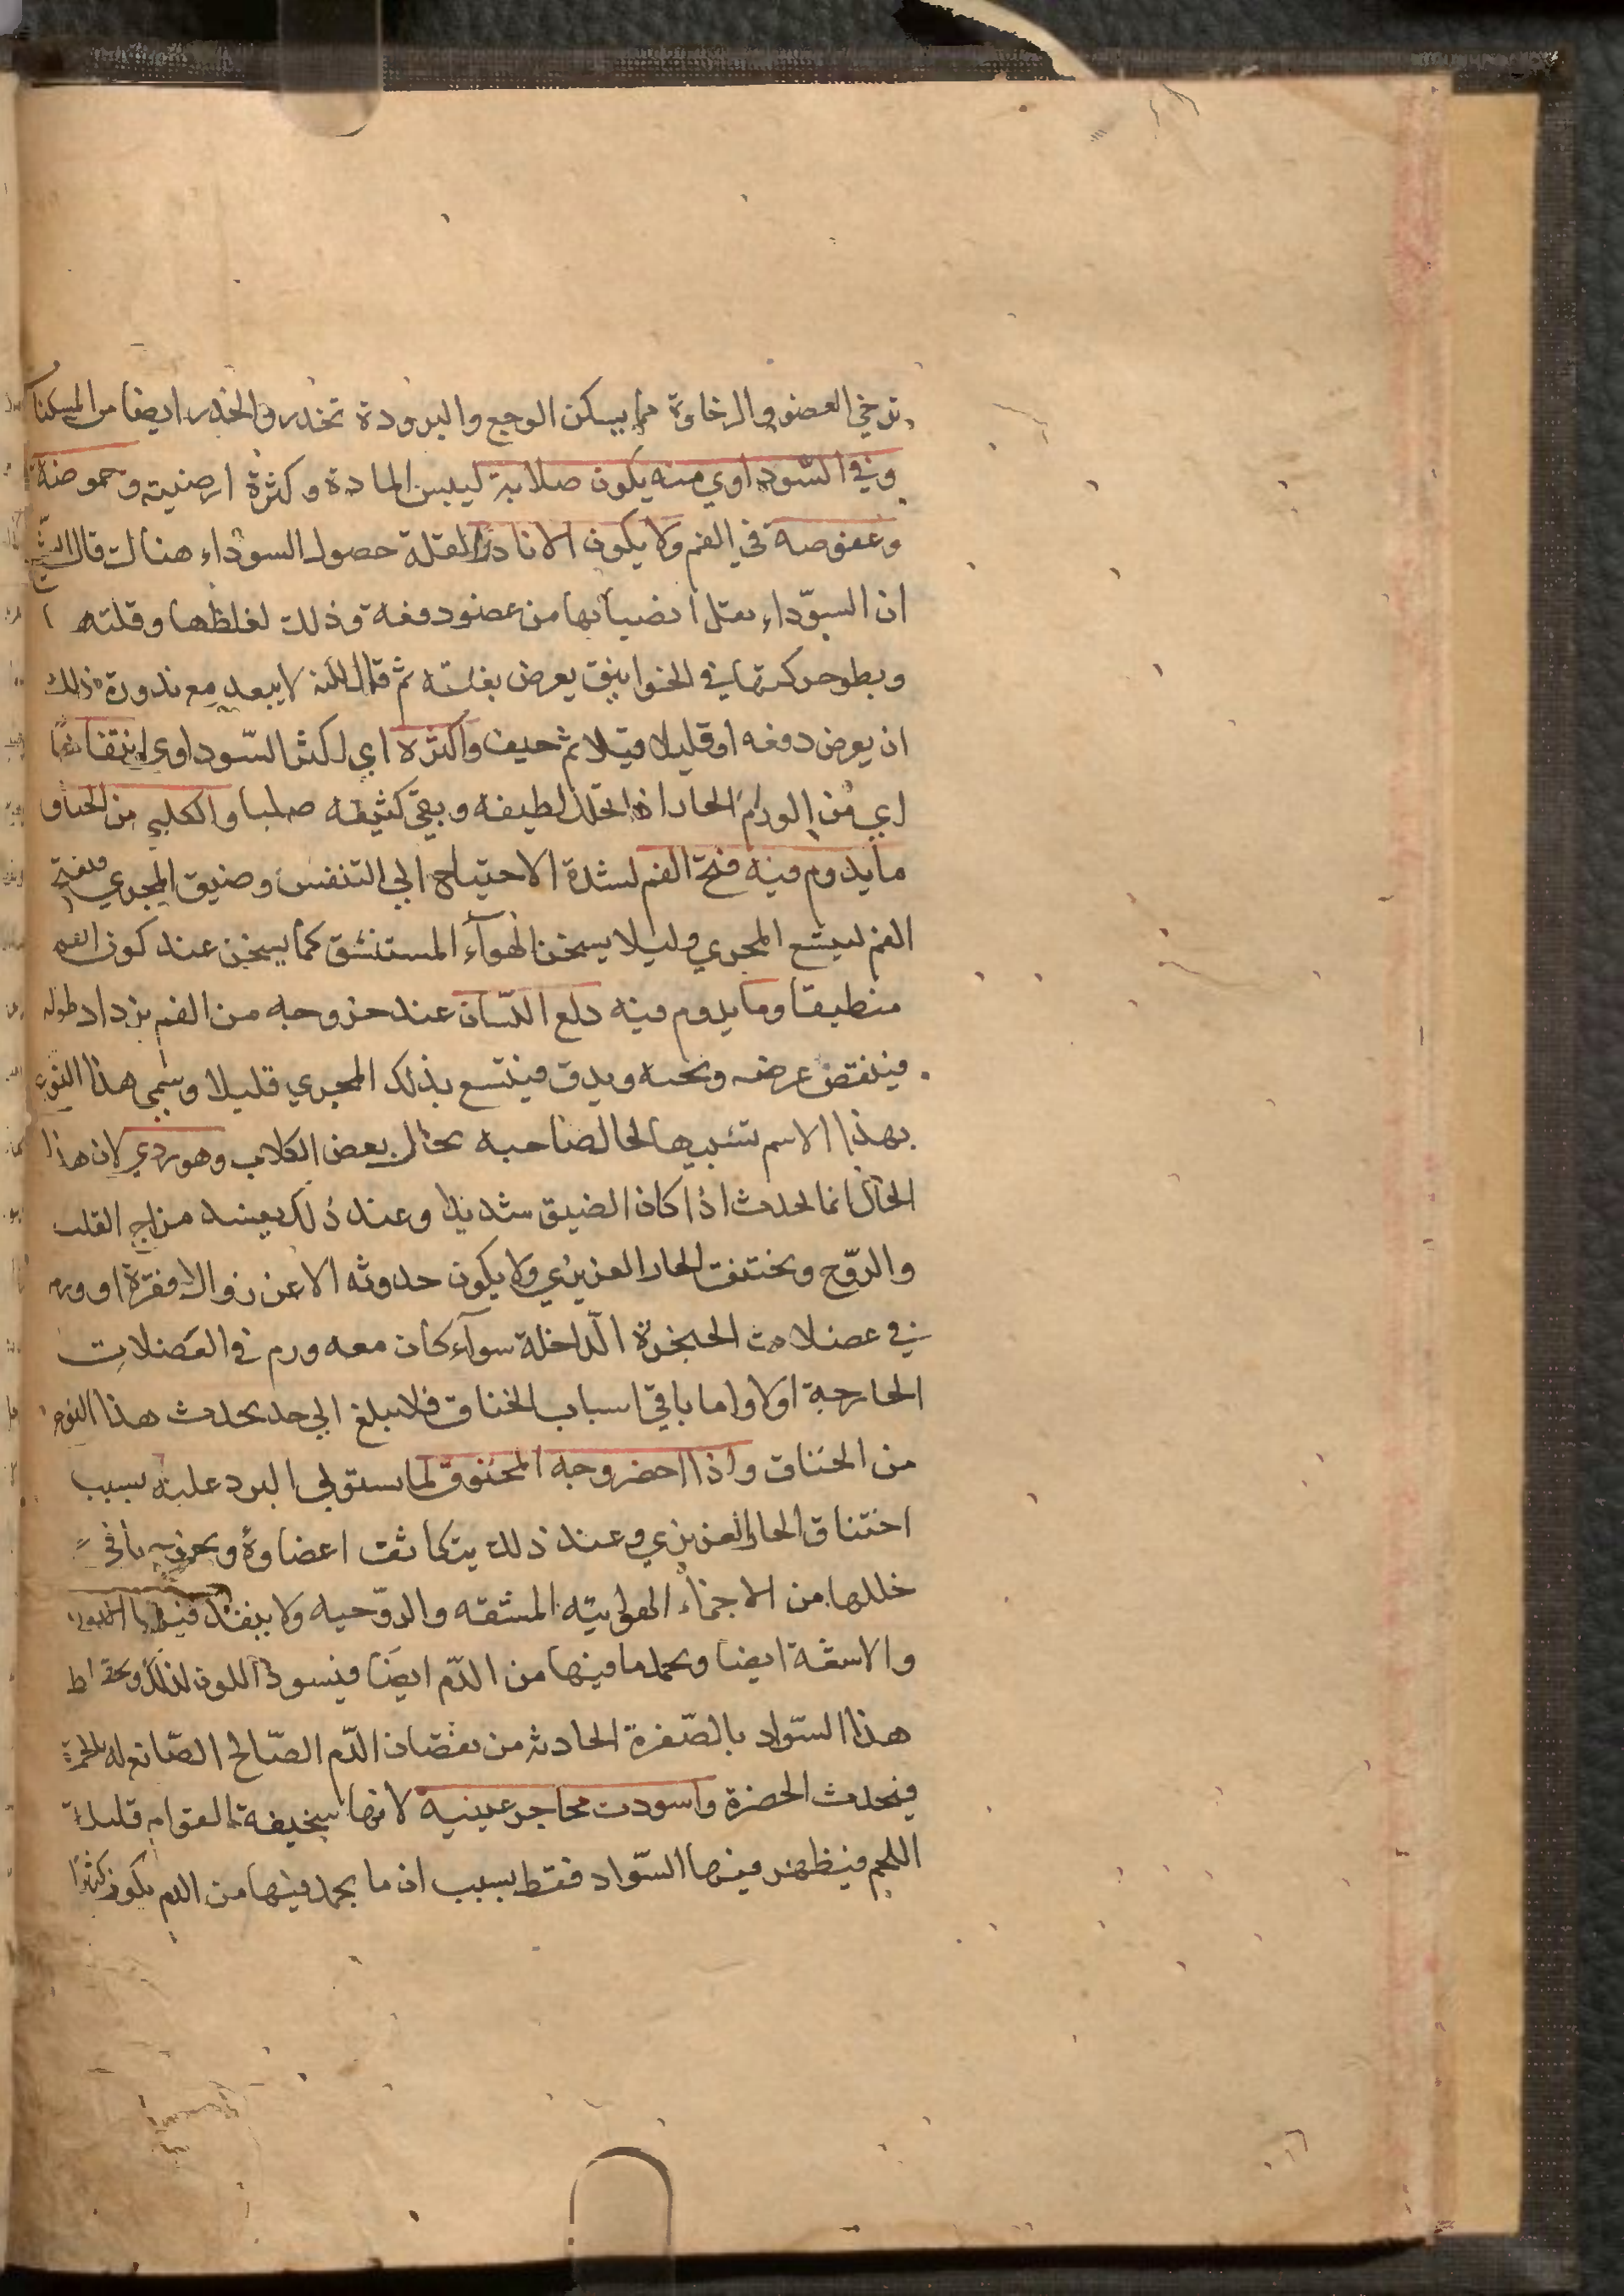 ترخي العضو والرخاوة مما يسكن الوجع والبرودة تخدر والخدر ايضا من المسكنا
وفي السّوداوي منه يكون صلابة ليبس المادة وكثرة ارضيته وحموضة
وعفوصة في الفم ولا يكون الا نادرًا لقلة حصول السوداء هنالك قال الشيخ
ان السوّداء يقل انصبابها من عضو دفعة وذلك لغلظها وقلتها
وبطو حركتها في الخوانيق يعرض بغتته ثم قال لكنه لا يبعد مع ندورة ذلك
ان يعرض دفعه او قليلا قليلا ثم حيف واكثره اي اكثر السّوداوي انتقالي
اي من الورم الحار اذا تحلل لطيفه وبقى كثيفه صلبا والكلبي من الخناق
ما يدوم فيه فتح الفم لشدة الاحتياج الي التنفس وضيق المجري فيفتح
الفم ليتسع المجري وليلا يسخن الهوآء المستنشق كما يسخن عند كون الفم
منطبقا وما يدوم فيه دلع اللسّان عند خروجه من الفم يزداد طوله
فينقص عرضه وثخنه ويدق فيتسع بذلك المجري قليلا وسمي هذا النوع
بهذا الاسم تشبيها لحال صاحبه بحال بعض الكلاب وهو ردي لان هذا
الحال انما يحدث اذا كان الضيق شديدا وعند ذلك يفسد مزاج القلب
والروّح ويختنق الحار الغريزي ولا يكون حدوثه الا عن زوال فقرة او ورم
في عضلات الحنجرة الّداخلة سوآء كان معه ورم في العضلات
الخارجة اولا واما باقي اسباب الخناق فلا يبلغ الي حد يحدث هذا النوع
من الخناق واذا اخضر وجه المخنوق لما يستولي البرد عليه بسبب
اختناق الحار الغريزي وعند ذلك يتكاثف اعضاوه ويخرج ما في
خللها من الاجزاء الهوايته المشفه والروّحيه ولا ينفذ فيها
والاشعّة ايضا ويجمد ما فيها من الدّم ايضا فيسود اللون لذلك ويختلط
هذا السّواد بالصّفرة الحادثه من نقصان الدّم الصّالح الصّانع له بالحمرة
فيحدث الخضرة واسودت محاجر عينيه لانها سخيفة القوام قليلة
اللحم فيظهر فيها السّواد فقط بسبب ان ما يجمد فيها من الدم يكون كثيرا